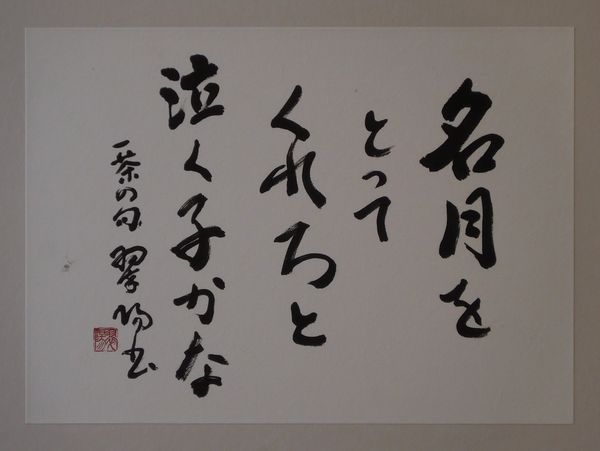 名月を
とって
くれろと
泣く子かな
一茶の句 翠陽書